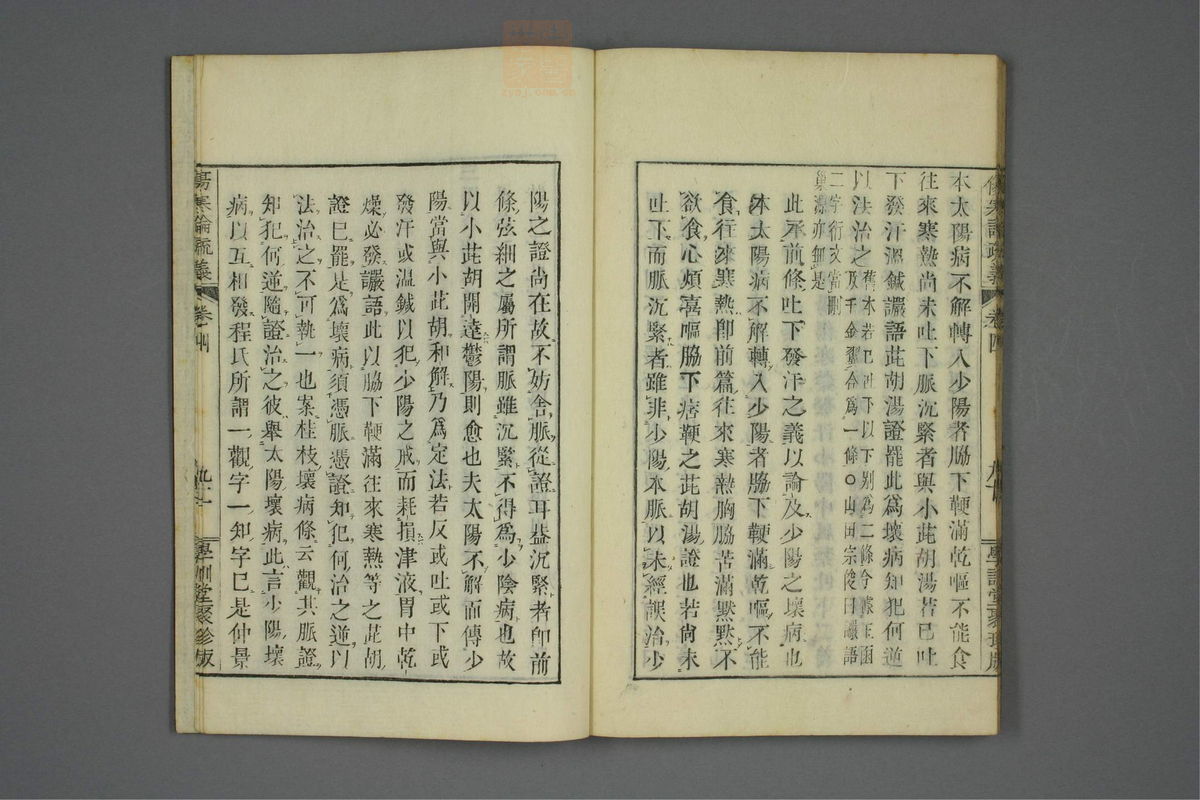 本太陽病不解轉入少陽者脇下鞕滿乾嘔不能食
往來寒熱尚未吐下脈沉緊者與小茈胡湯若已吐
下發汗溫鍼讝語茈胡湯證罷此爲壞病知犯何逆
以法治之舊本若已吐下以下別爲二條今據玉函
及千金翼合爲一條○山田宗俊曰讝語
二字衍文當刪
巢源亦無是
此承前條吐下發汗之義以論及少陽之壞病也
本太陽病不解轉入少陽者脇下鞕滿乾嘔不能
食往來寒熱卽前篇往來寒熱胸脇苦滿默默不
欲食心煩喜嘔脇下痞鞕之茈胡湯證也若尚未
吐下而脈沉緊者雖非少陽本脈以未經誤治少
陽之證尚在故不妨舍脈從證耳益沉緊者卽前
條弦細之屬所謂脈雖沉緊不得爲少陰病也故
以小茈胡開達鬱陽則愈也夫太陽不解而傳少
陽當與小茈胡和解乃爲定法若反或吐或下或
發汗或溫鍼以犯少陽之戒而耗損津液胃中乾
燥必發讝語此以脇下鞕滿往來寒熱等之茈胡
證已罷是爲壞病須憑脈憑證知犯何治之逆以
法治之不可執一也案桂枝壞病條云觀其脈證
知犯何逆隨證治之彼舉太陽壞病此言少陽壞
病以互相發程氏所謂一觀字一知字已是仲景
傷寒論疏義 卷四 學訓堂聚珍版